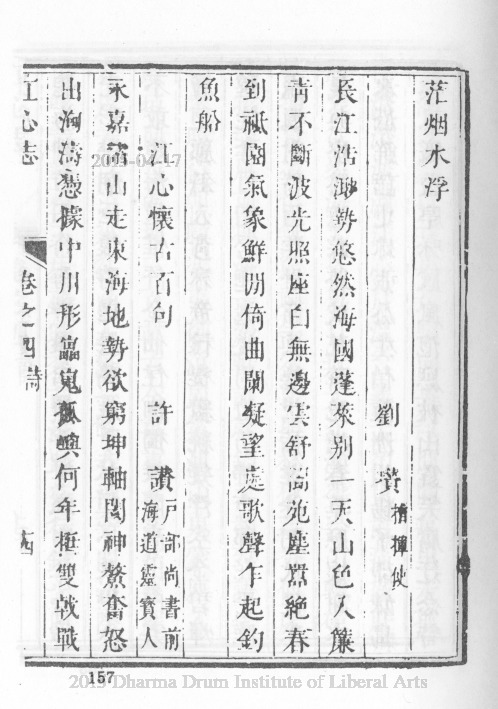 茫烟水浮
劉 指揮使
長江浩渺勢悠然海國蓬萊别一天山色入簾
青不斷波光照座白無邊雲舒苑塵囂絕春
到祇園氣象鮮閒倚曲闌凝望處歌聲乍起釣
魚船
江心懷古百句 許 讚 戶部尚書前海道靈寳人
永嘉諸山走東海地勢欲窮坤軸閡神鰲奮怒
出洶濤憑據中川形贔孤嶼何年雙戟戰
江心志 卷之四 詩
157
Dharma Drum Institute of Liberal Arts